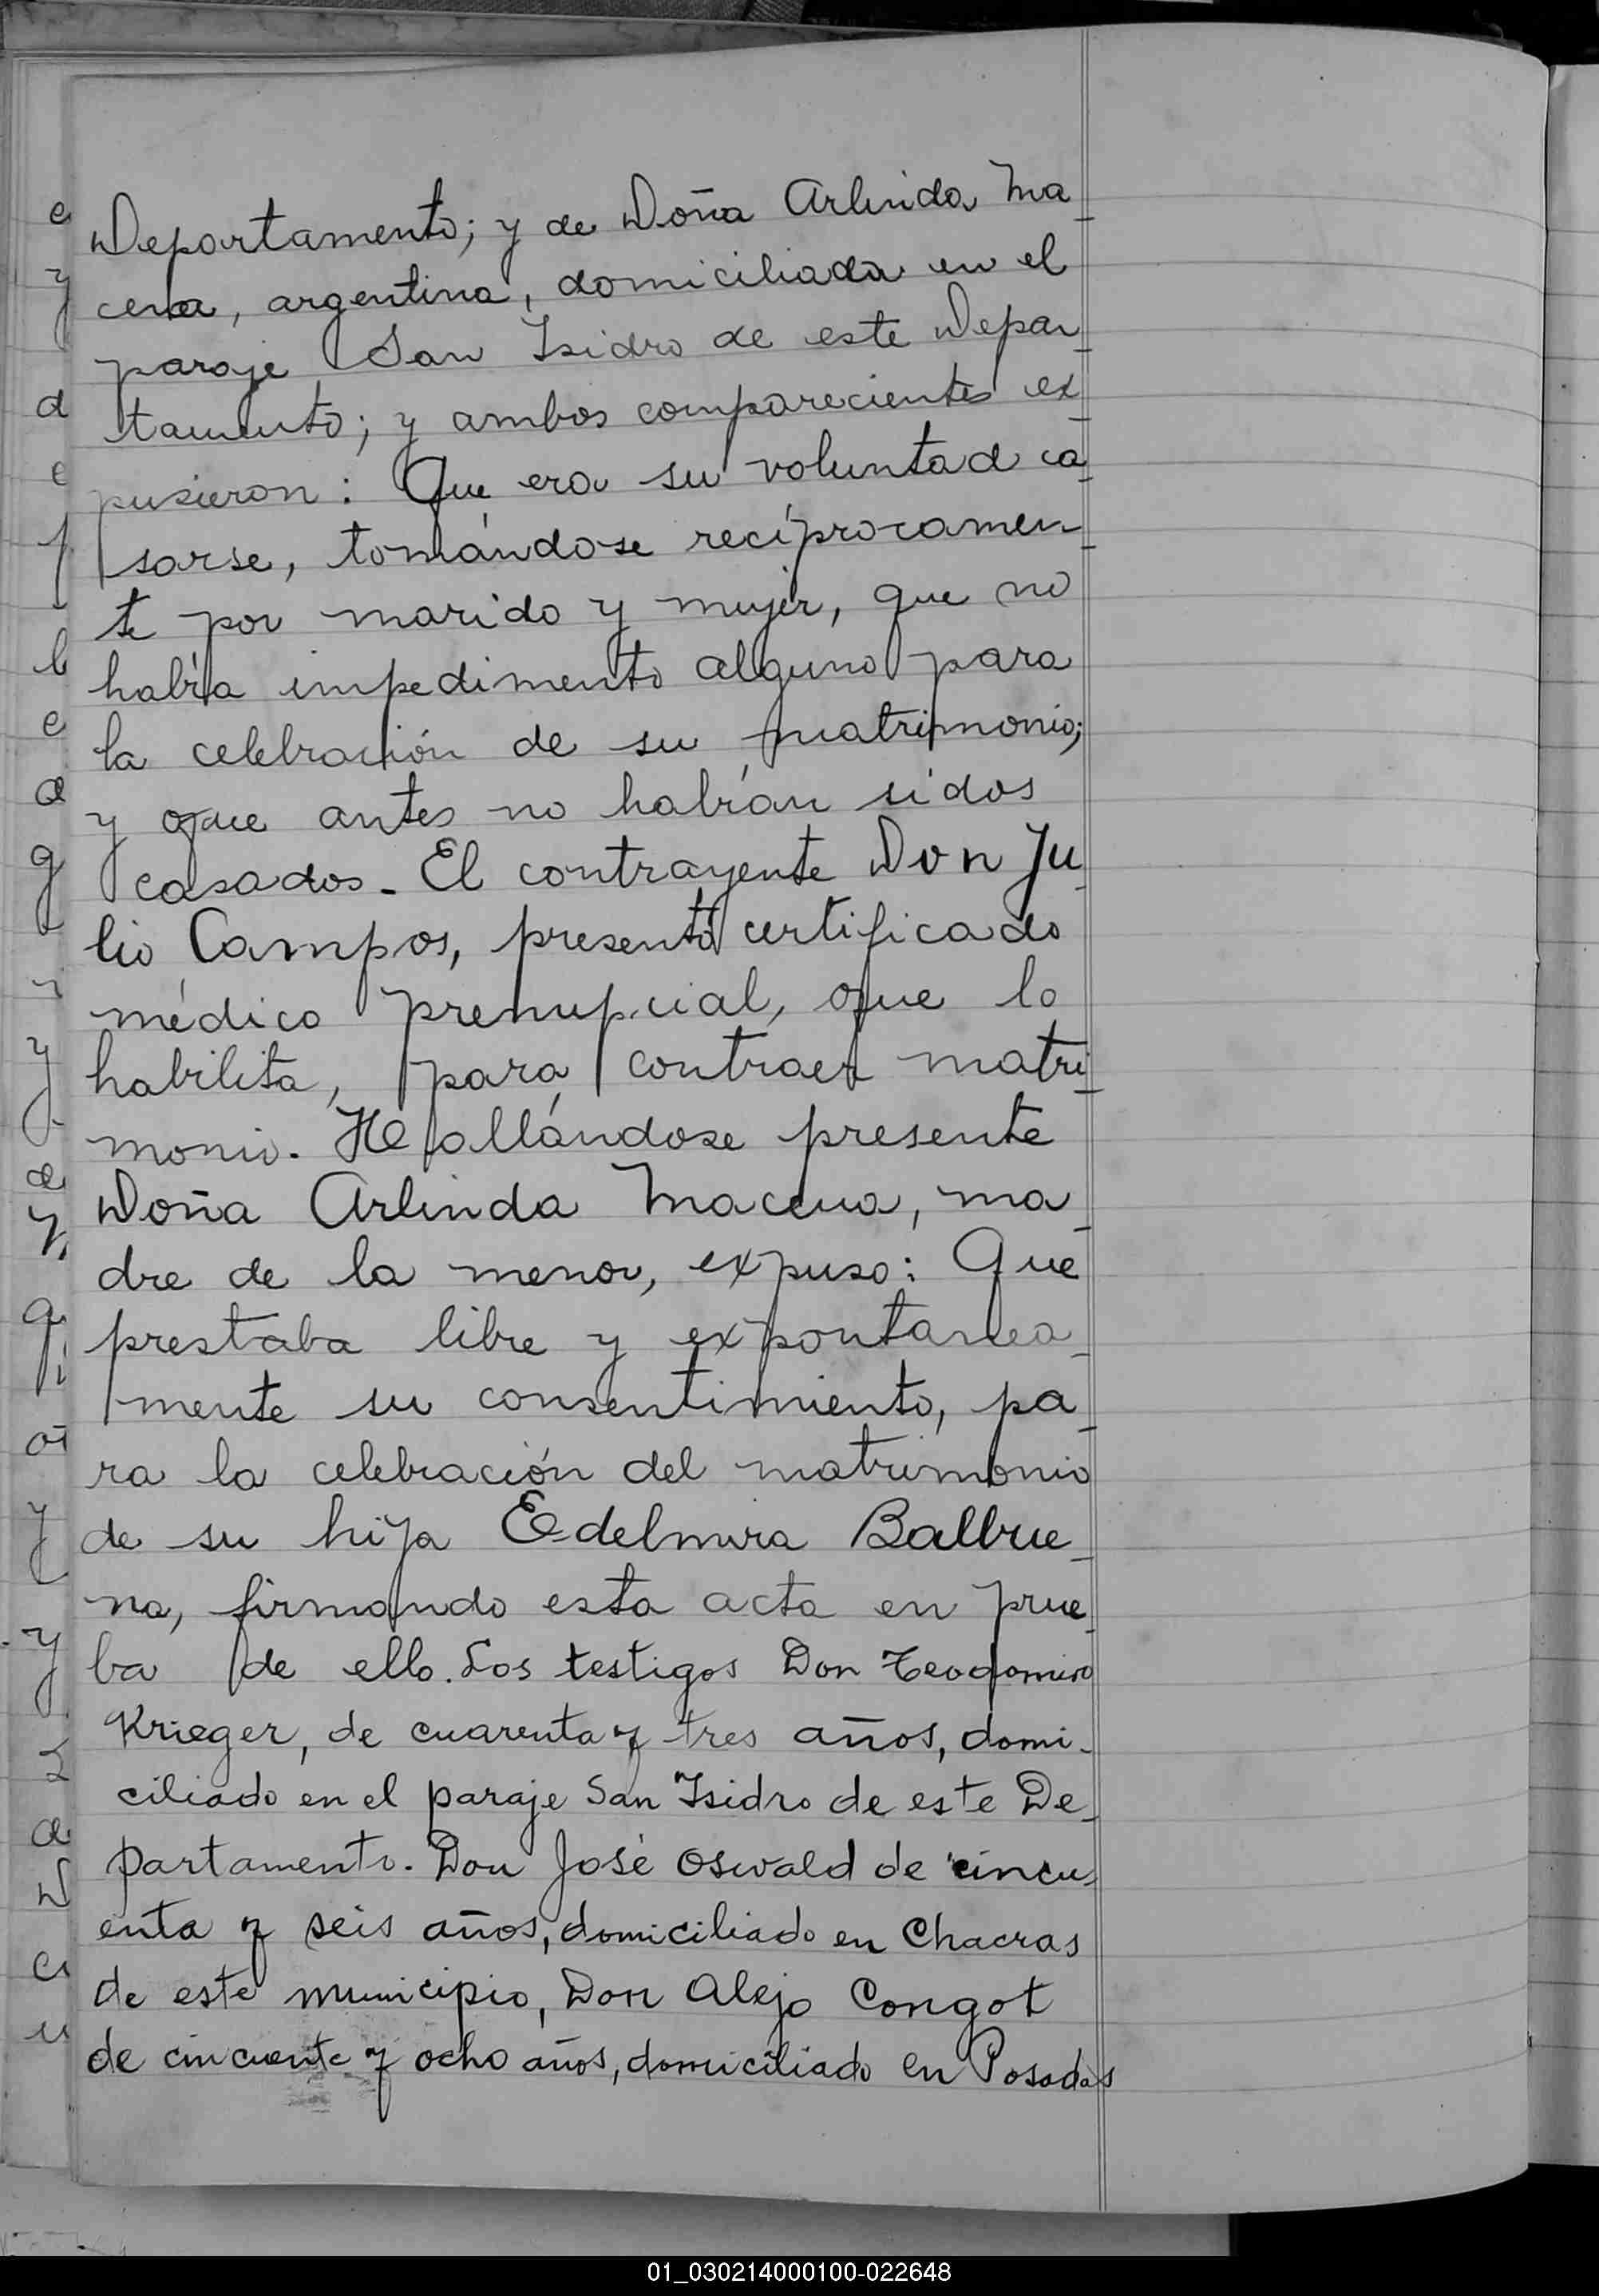 Departamento; y de Doña Arlinda Ma_
cena, argentina, domiciliada en el
paraje San Isidro de este Depar_
tamento; y ambos comparecientes ex_
pusieron: Que era su voluntad ca_
sarse, tomándose recíprocamen_
te por marido y mujer, que no
había impedimento alguno para
la celebración de su matrimonio;
y que antes no habían sidos
casados_ El contrayente Don Ju_
lio Campos, presentó certificado
médico prenupcial, que lo
habilita, para contraer matri_
monio. Hallándose presente
Doña Arlinda Macena, ma_
dre de la menor, expuso: Que
prestaba libre y expontanea_
mente su consentimiento, pa_
ra la celebración del matrimonio
de su hija Edelmira Balbue_
na, firmando esta acta en prue_
ba de ello. Los testigos Don Teodomiro
Krieger, de cuarenta y tres años, domi_
ciliado en el paraje San Isidro de este De_
partamento. Don José Oswald de cincu_
enta y seis años, domiciliado en Chacras
de este municipio, Don Alejo Congot
de cincuenta y ocho años, domiciliado en Posadas
01_030214000100-022648